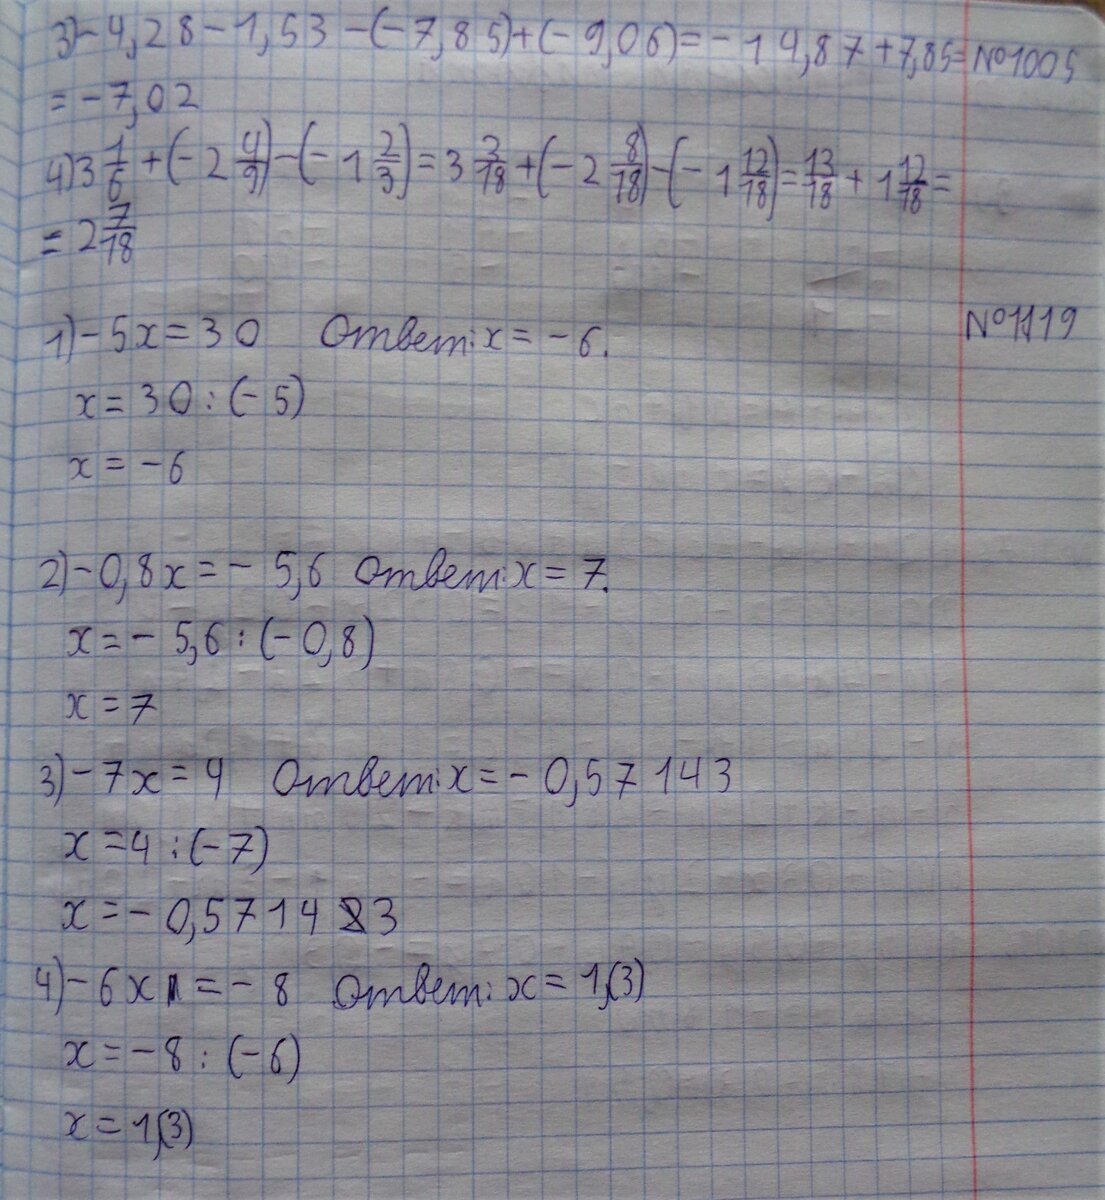 3) -4,28 - 1,53 - (-7,85) + (-9,06) = -14,87 + 7,85= №1005
= -7,02
4) 3 1/6 + (-2 4/9) - (-1 2/3) = 3 3/18 + (-2 8/18) - (-1 12/18) = 13/18 + 1 12/18 =
= 2 7/18
1) -5x = 30 Ответ: x = -6. №1119
x = 30 : (-5)
x = -6
2) -0,8x = -5,6 Ответ: x = 7.
x = -5,6 : (-0,8)
x = 7
3) -7x = 4 Ответ: x = -0,57143
x = 4 : (-7)
x = -0,57143
4) -6x = -8 Ответ: x = 1,(3)
x = -8 : (-6)
x = 1,(3)